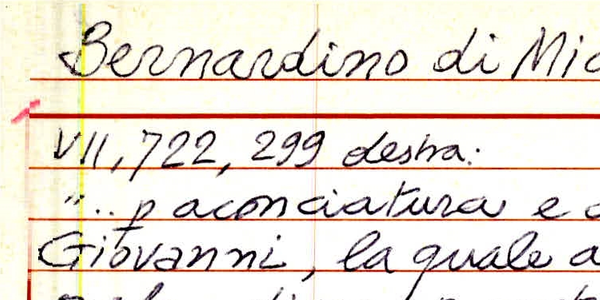 Bernardino di Mic
VII, 722, 299 destra:
"... p aconciatura e
Giovanni, la quale a